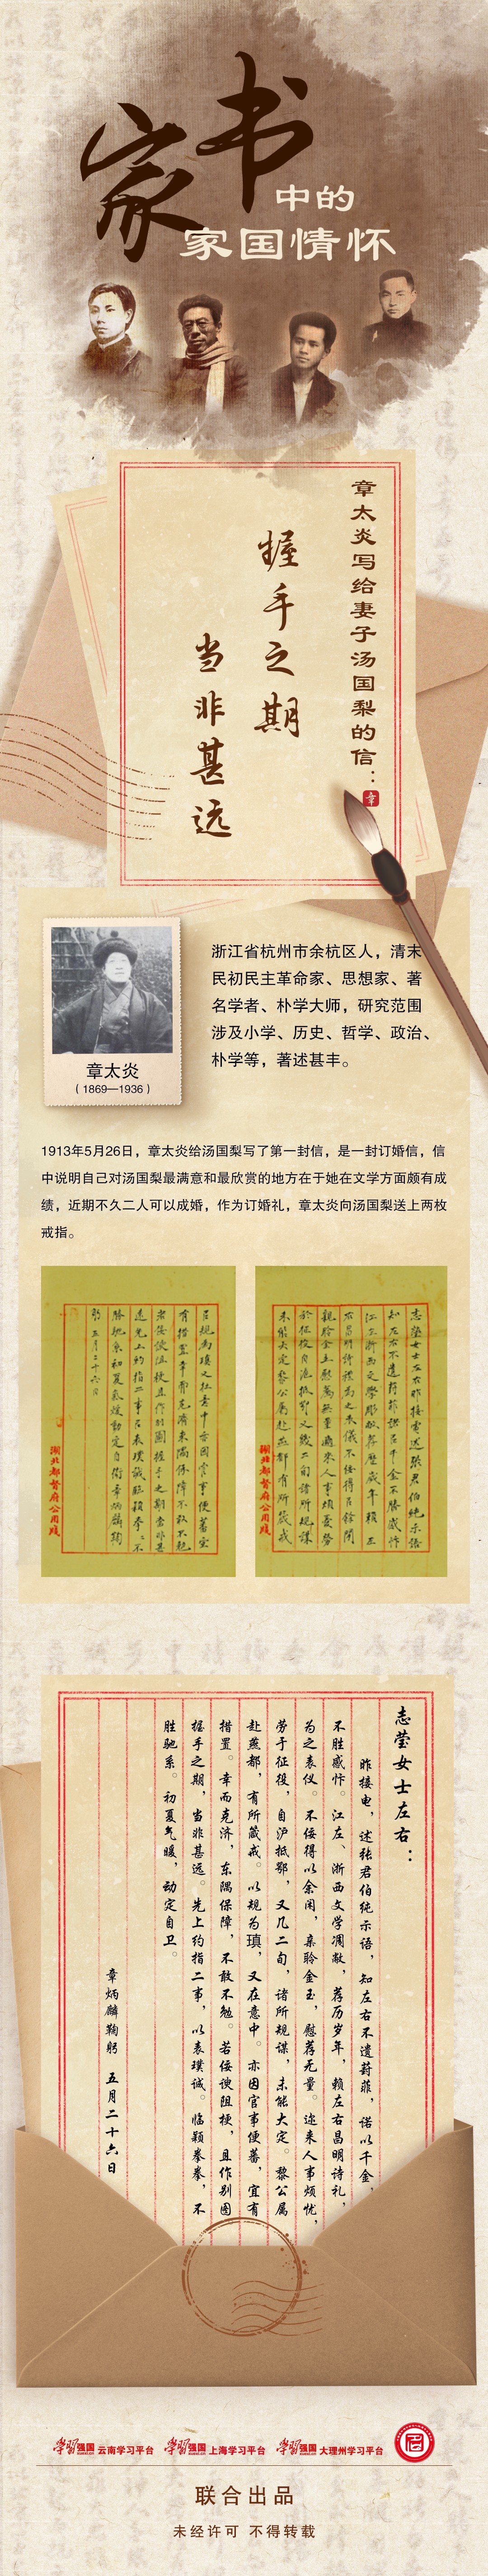 家书
中的
家国情怀
章太炎写给妻子汤国梨的信：
章
握手之期
当非甚远
章太炎
（1869—1936）
浙江省杭州市余杭区人，清末
民初民主革命家、思想家、著
名学者、朴学大师，研究范围
涉及小学、历史、哲学、政治、
朴学等，著述甚丰。
1913年5月26日，章太炎给汤国梨写了第一封信，是一封订婚信，信
中说明自己对汤国梨最满意和最欣赏的地方在于她在文学方面颇有成
绩，近期不久二人可以成婚，作为订婚礼，章太炎向汤国梨送上两枚
戒指。
志莹女士左右昨接電述張君伯純示語
知左右不遺葑菲諾以千金不勝感忭
湖北都督府公用牋
湖北都督府公用牋
志莹女士左右：
昨接电，述张君伯纯示语，知左右不遗葑菲，诺以千金，
不胜感忭。江左、浙西文学凋敝，荐历岁年，赖左右昌明诗礼，
为之表仪。不佞得以余闲，亲聆金玉，慰荐无量。迩来人事烦忧，
劳于征役，自沪抵鄂，又几二旬，诸所规谋，未能大定。黎公属
赴燕都，有所箴戒。以规为瑱，又在意中。亦因官事便蕃，宜有
措置。幸而克济，东隅保障，不敢不勉。若佞谀阻梗，且作别图
握手之期，当非甚远。先上约指二事，以表璞诚。临颖拳拳，不
胜驰系。初夏气暖，动定自卫。
章炳麟鞠躬 五月二十六日
学习强国 云南学习平台 学习强国 上海学习平台 学习强国 大理州学习平台
联合出品
未经许可 不得转载